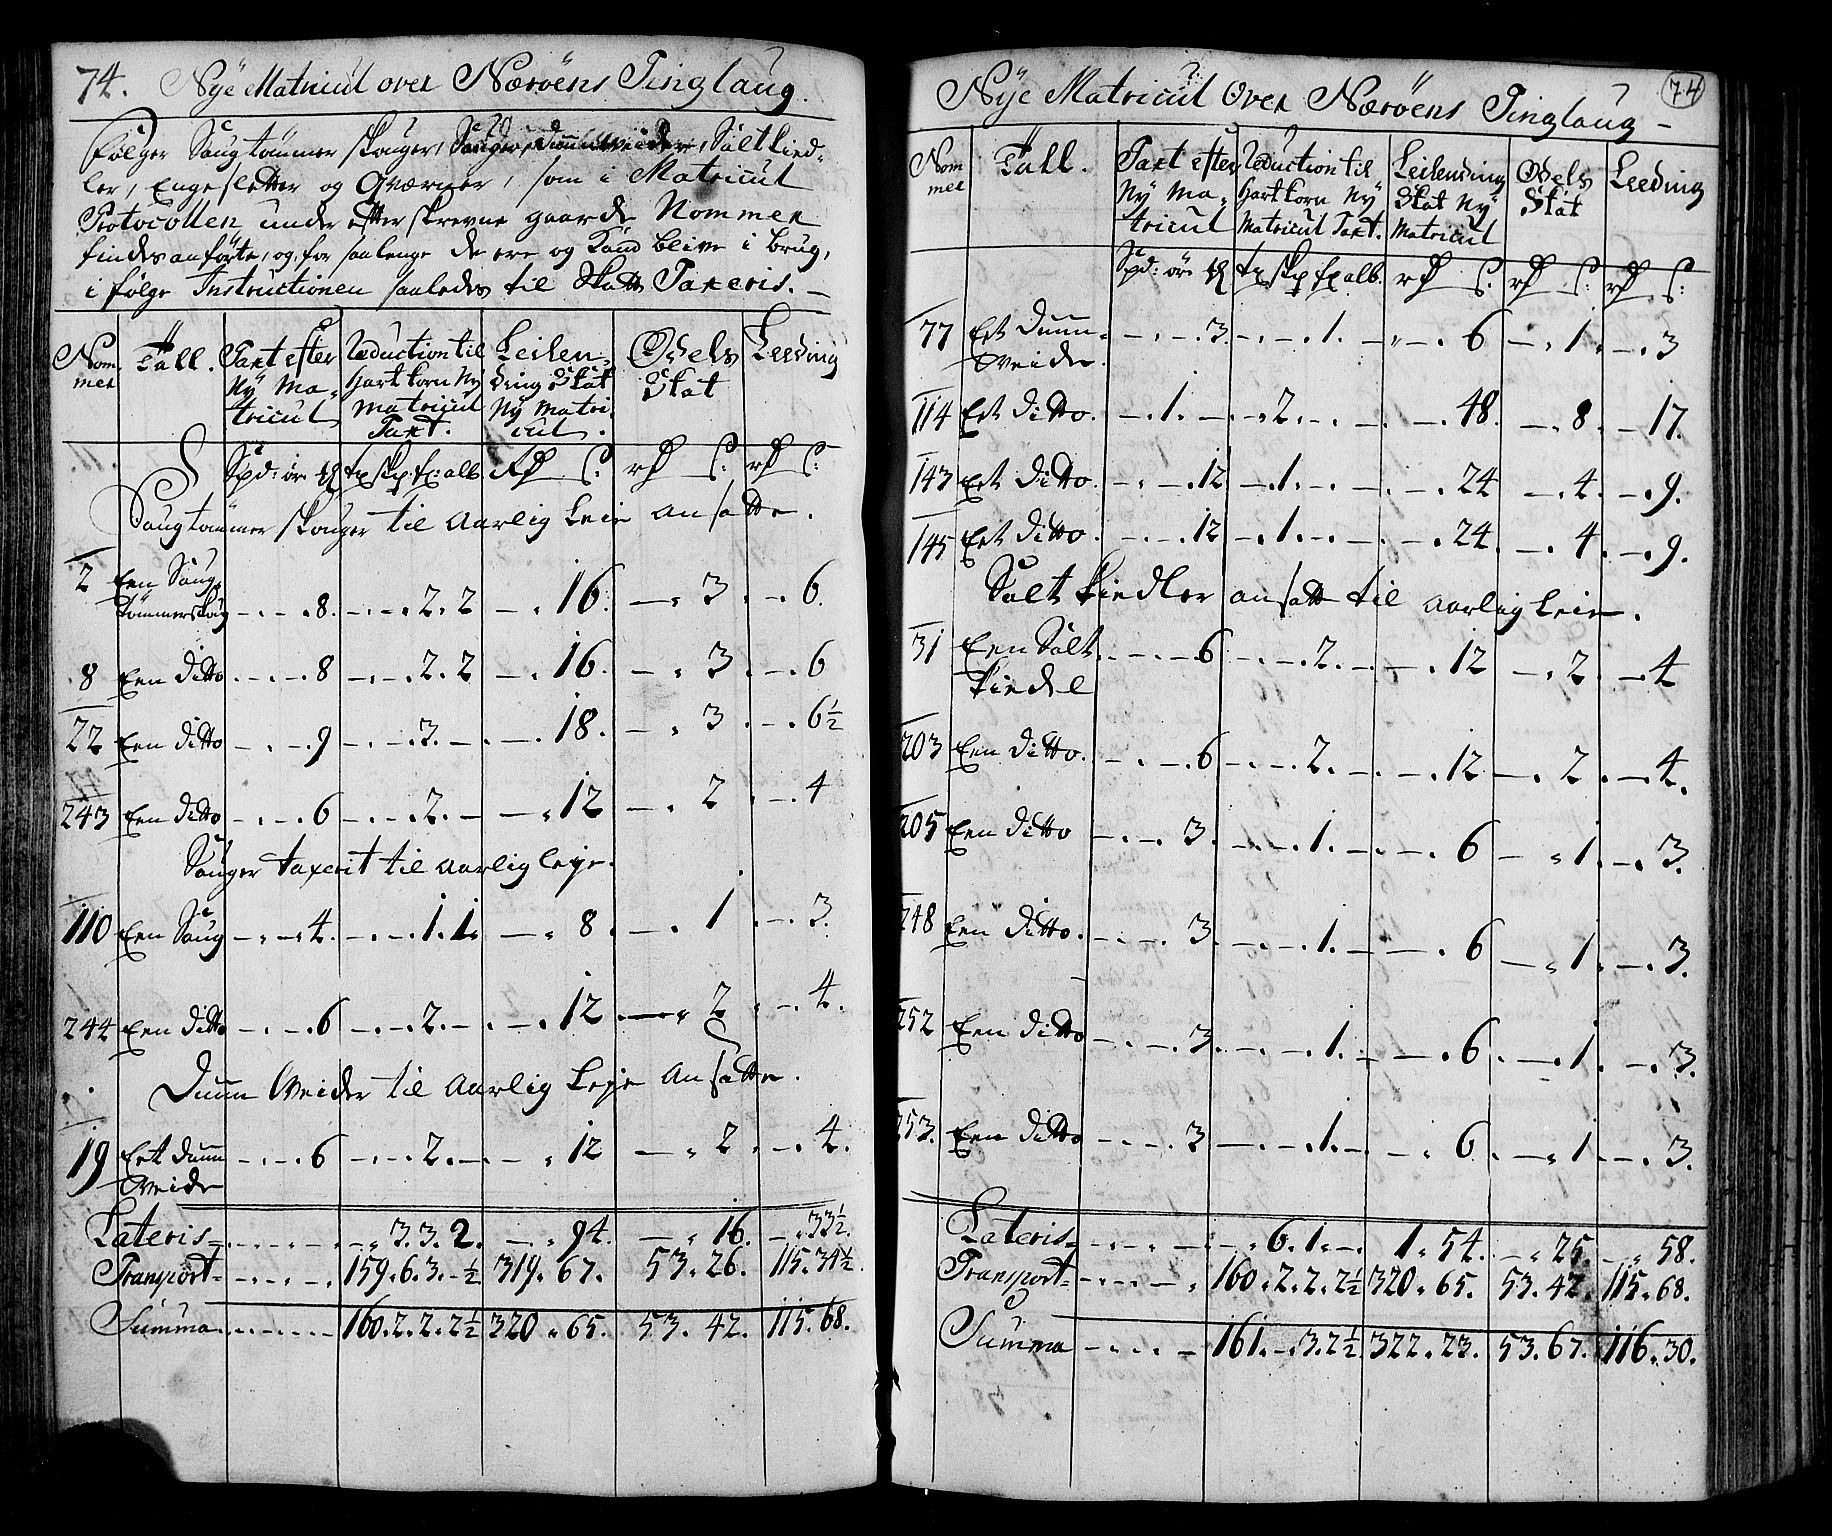 74. Nye Matricul over Nærøens Tinglaug.
Følger Saugtømmer skouger, Sauger, Duunveider, Saltkied-
ler, Engesletter og Qværner, som i Matricul
Protocollen under efterskrevne gaarde Nommer
findes anførte, og, for saalenge de ere og kand blive i brug,
i følge Instructionen saaledes til Skatt Taxeris. —
Nom mer | Tall. | Taxt efter Ny Ma- tricul | Reduction til Hartkorn Ny Matricul Taxt. | Leilen- ding Skat Ny Matri- cul. | Odels Skat | Leeding
Spd: ør
Saugtømmer skouger til Aarlig Leie ansatte.
2 Een Saug- tømmerskoug — . — . 8. — . — . 2. 2 — . 16. — . 3. — . 6.
8 Een ditto . — . — . 8 — . — . 2. 2 — . 16. — . 3. — . 6
22 Een ditto — . — . 9 — . — . 3. — . — . 18. — . 3. — . 6½
243 Een ditto — . — . 6 — . — . 2. — — . 12 — . 2. — . 4
Sauger taxerit til aarlig leje.
110 Een Saug — . — . 4. — . — . 1. 1. — . 8. — . 1. — . 3.
244 Een ditto — . — . 6 — . — . 2. — . — . 12. — . 2. — . 4.
Duun Veider til Aarlig Leje Ansatte.
19 Ett Duun Veide — . — . 6 — . — . 2. — . — . 12 — . 2. — . 4.
Lateris — . 3. 3. 2. — . 94. — . 16. — . 33½.
Transport 159. 6. 3. — ½ 319. 67. 53. 26. 115. 34½.
Summa 160. 2. 2. 2½ 320. 65. 53. 42. 115. 68.
Nye Matricul Over Nærøens Tinglaug — 74
Nom mer | Tall. | Taxt efter Ny Ma- tricul | Reduction til Hartkorn Ny Matricul Taxt. | Leilending Skat Ny Matricul | Odels Skat | Leeding
Spd: ør
77 Ett Duun- Veide. — . — . 3. — . — . 1. — . 6 — . 1. — . 3
114 Ett ditto. — . 1. — . — . 2. — . 48. — . 8. — 17.
143 Ett ditto. — . — . 12. — . 1. — . 24 — . 4. — . 9.
145 Ett ditto. — . — . 12 — . 1. — . 24. — . 4. — . 9.
Salt Kiedler ansatt til aarlig Leie.
31 Een Salt kiedel — . — . 6 — . — . 2. — . — . 12 — . 2. — . 4
203 Een ditto. — . — . 6 — . — . 2. — . — . 12 — . 2. — . 4.
205 Een ditto — . — . 3. — . — . 1. — . — . 6 — . 1. — . 3.
248 Een ditto. — . — . 3. — . — . 1. — . — . 6 — . 1. — . 3.
252 Een ditto — . — . 3. — . — . 1. — — . 6. — . 1. — . 3.
253. Een ditto — . — . 3 — . — . 1. — . 6. — . 1. — . 3.
Lateris — . 6. 1. — . 1. 54. — . 25. — . 58.
Transport 160. 2. 2. 2½ 320. 65. 53. 42. 115. 68.
Summa 161. — . 3. 2½. 322. 23. 53. 67. 116. 30.